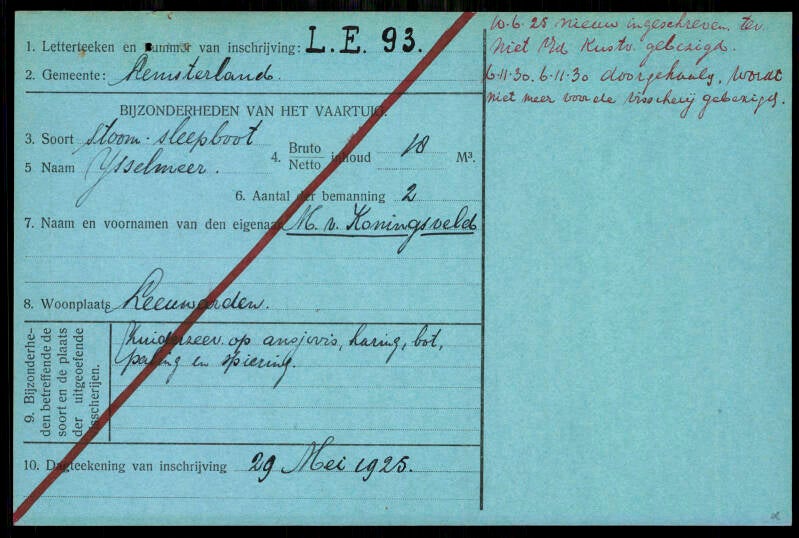 1. Letterteeken en nummer van inschrijving: L.E. 93.
2. Gemeente: Lemsterland.
BIJZONDERHEDEN VAN HET VAARTUIG.
3. Soort stoom-sleepboot
4. Bruto
Netto inhoud 18 M³.
5 Naam Ysselmeer.
6. Aantal der bemanning 2
7. Naam en voornamen van den eigenaar M. v. Koningsveld
8. Woonplaats Leeuwarden.
9. Bijzonderhe-
den betreffende de
soort en de plaats
der uitgeoefende
visscherijen.
Zuiderzee op ansjovis, haring, bot,
paling en spiering.
10. Dagteekening van inschrijving 29 Mei 1925.
10-6-25 nieuw ingeschreven ter
niet Kustv. gebezigd.
6-11-30. 6-11-30 doorgehaald, wordt
niet meer voor de visscherij gebezigd.